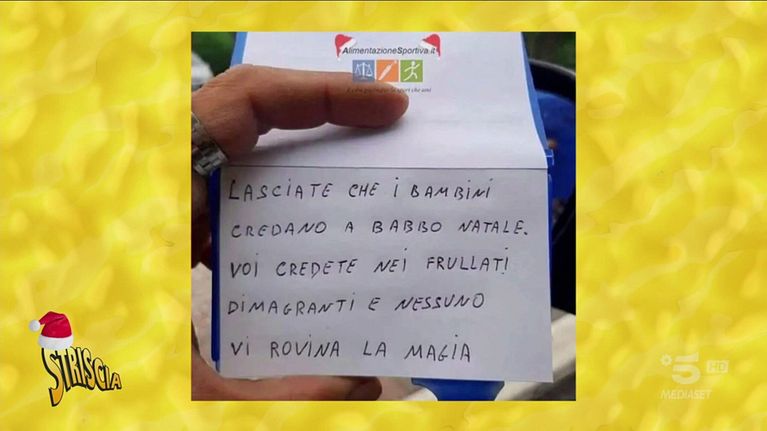 AlimentazioneSportiva.it
LASCIATE CHE I BAMBINI
CREDANO A BABBO NATALE.
VOI CREDETE NEI FRULLATI
DIMAGRANTI E NESSUNO
VI ROVINA LA MAGIA
STRISCIA
5 HD
MEDIASET